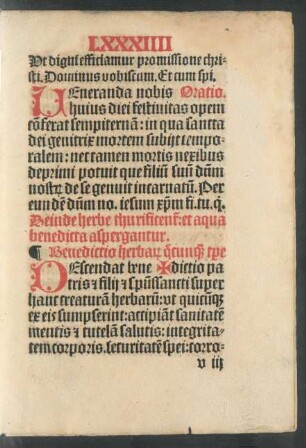 LXXXIIII
Vt digni efficiamur promissione chri-
sti. Dominus vobiscum. Et cum spi.
UEneranda nobis Oratio.
huius diei festiuitas opem
cōferat sempiternā: in qua sancta
dei genitrix mortem subijt tempo-
ralem: nec tamen mortis nexibus
deprimi potuit que filiū suū dūm
nostrȝ de se genuit incarnatū. Per
eundē dūm no. iesum xp̄m fi. tu. q̄.
Deinde herbe thurificent̄: et aqua
benedicta aspergantur.
¶ Benedictio herbarȝ q̄cunqȝ tp̄e
DEscendat bn̄e ✠dictio pa
tris ⁊ filij ⁊ sp̄ussancti super
hanc creaturā herbarū: vt quicūqȝ
ex eis sumpserint: accipiāt sanitatē
mentis ⁊ tutelā salutis: integrita-
tem corporis. securitatē spei: corro-
v iij